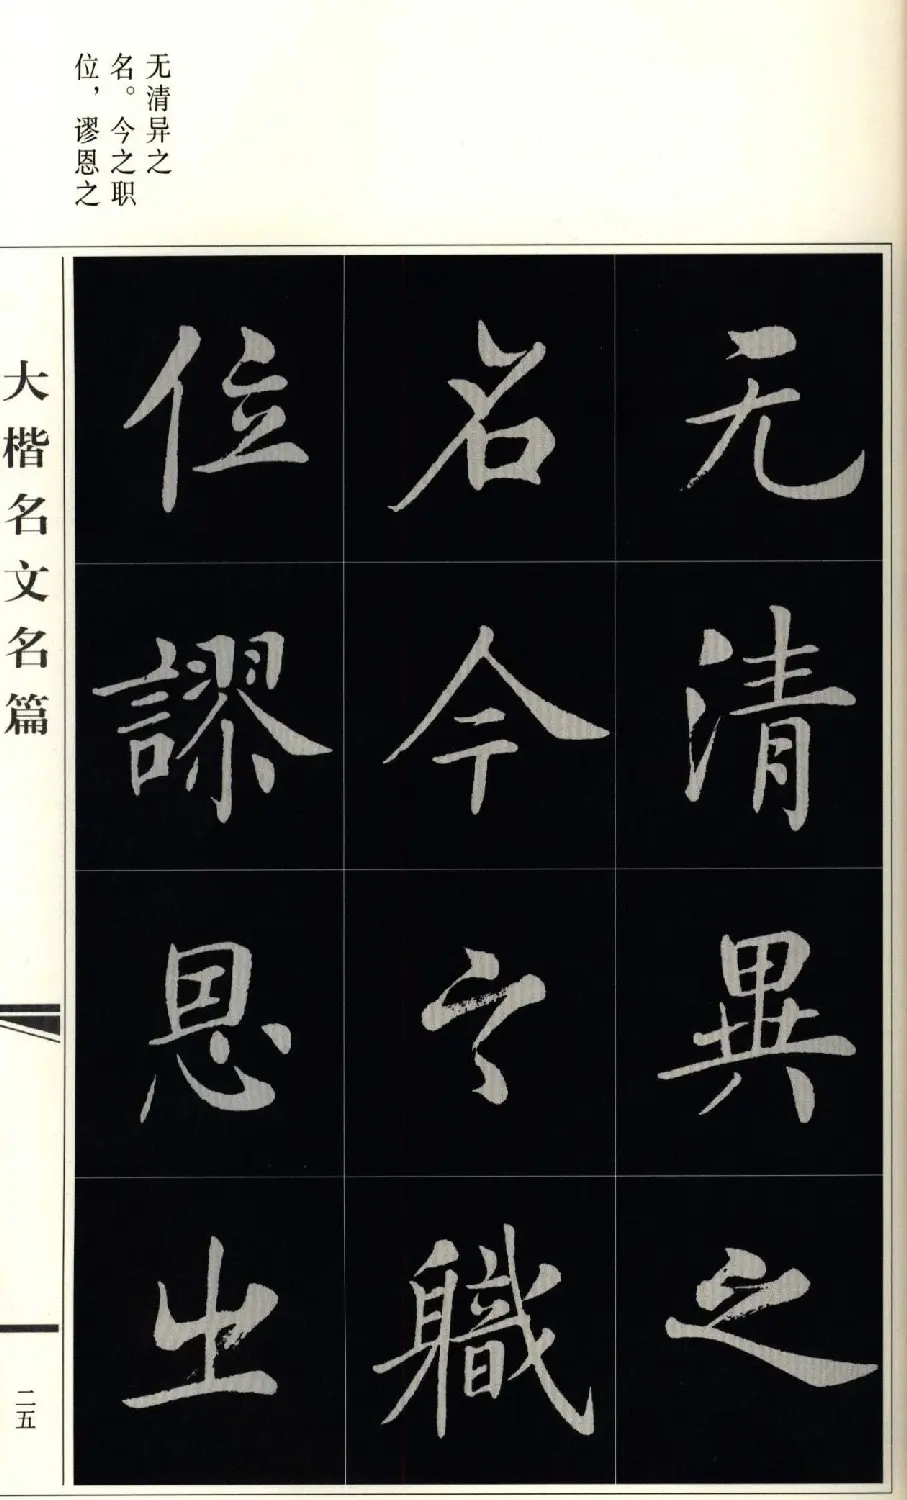 无清异之
名。今之职
位，谬恩之
无清異之
名今之軄
位謬恩㞢
大楷名文名篇
二五